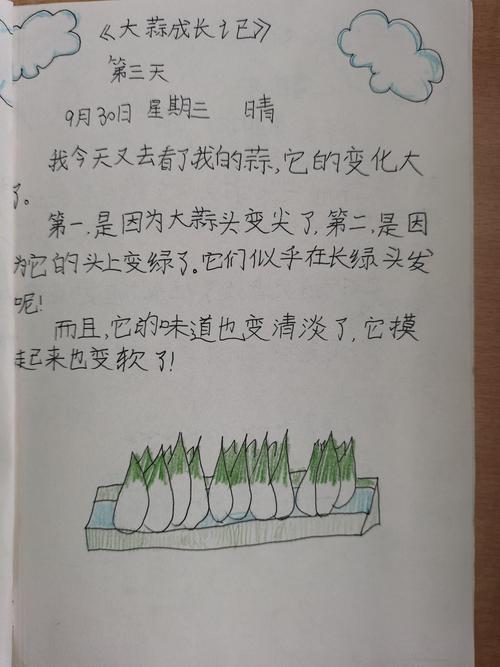 《大蒜成长记》
第三天
9月30日 星期三 晴
我今天又去看了我的蒜,它的变化大
了。
第一,是因为大蒜头变尖了,第二,是因
为它的头上变绿了。它们似乎在长绿头发
呢!
而且,它的味道也变清淡了,它摸
起来也变软了!